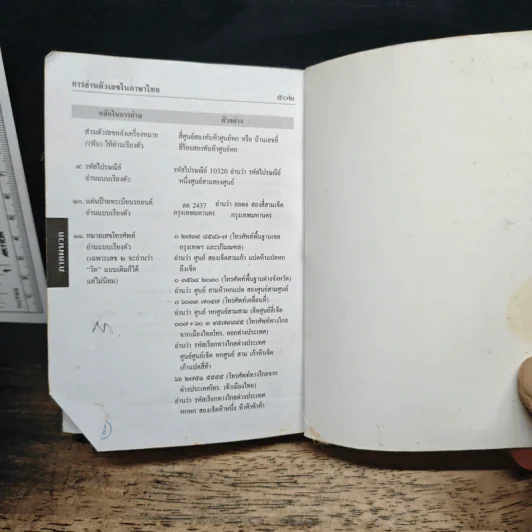 การอ่านตัวเลขในภาษาไทย
๕๐๒
หลักในการอ่าน ตัวอย่าง
ส่วนตัวเลขหลังเครื่องหมาย สี่ศูนย์สองทับห้าศูนย์หก หรือ บ้านเลขที่
/(ทับ) ให้อ่านเรียงตัว สี่ร้อยสองทับห้าศูนย์หก
๙. รหัสไปรษณีย์ รหัสไปรษณีย์ 10320 อ่านว่า รหัสไปรษณีย์
อ่านแบบเรียงตัว หนึ่งศูนย์สามสองศูนย์
๑๐. แผ่นป้ายทะเบียนรถยนต์ ลอ 2437 อ่านว่า ลออ สองสี่สามเจ็ด
อ่านแบบเรียงตัว กรุงเทพมหานคร กรุงเทพมหานคร
๑๑. หมายเลขโทรศัพท์ ๐ ๒๗๓๙ ๘๕๘๖-๗ (โทรศัพท์พื้นฐานเขต
อ่านแบบเรียงตัว กรุงเทพฯ และปริมณฑล)
(เฉพาะเลข ๒ จะอ่านว่า อ่านว่า ศูนย์ สองเจ็ดสามเก้า แปดห้าแปดหก
"โท" แบบเดิมก็ได้ ถึงเจ็ด
แต่ไม่นิยม) ๐ ๓๕๖๘ ๒๐๓๐ (โทรศัพท์พื้นฐานต่างจังหวัด)
อ่านว่า ศูนย์ สามห้าหกแปด สองศูนย์สามศูนย์
๐ ๖๐๓๓ ๗๐๔๗ (โทรศัพท์เคลื่อนที่)
อ่านว่า ศูนย์ หกศูนย์สามสาม เจ็ดศูนย์สี่เจ็ด
(โทรศัพท์ทางไกล
จากเมืองไทยโทร. ออกต่างประเทศ)
อ่านว่า รหัสเรียกทางไกลต่างประเทศ
ศูนย์ศูนย์เจ็ด หกศูนย์ สาม เก้าห้าเจ็ด
เก้าแปดสี่ห้า
๖๖ ๒๗๕๑ ๕๕๕๕ (โทรศัพท์ทางไกลจาก
ต่างประเทศโทร. เข้าเมืองไทย)
อ่านว่า รหัสเรียกทางไกลต่างประเทศ
หกหก สองเจ็ดห้าหนึ่ง ห้าห้าห้าห้า
ภาคผนวก